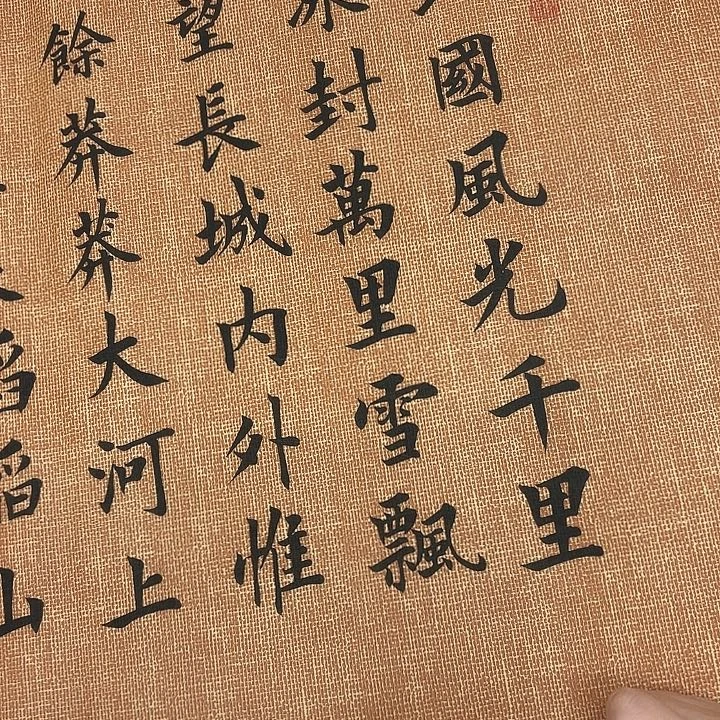 國風光千里
封萬里雪飄
望長城内外惟
餘莽莽大河上
滔滔山